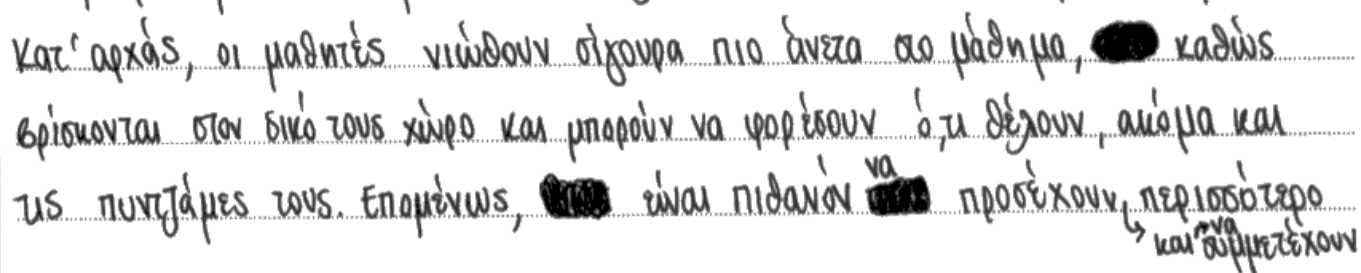 Κατ' αρχάς, οι μαθητές νιώθουν σίγουρα πιο άνετα στο μάθημα, καθώς
βρίσκονται στον δικό τους χώρο και μπορούν να φορέσουν ό,τι θέλουν, ακόμα και
τις πυντζάμες τους. Επομένως, είναι πιθανόν να προσέχουν περισσότερο
και να συμμετέχουν